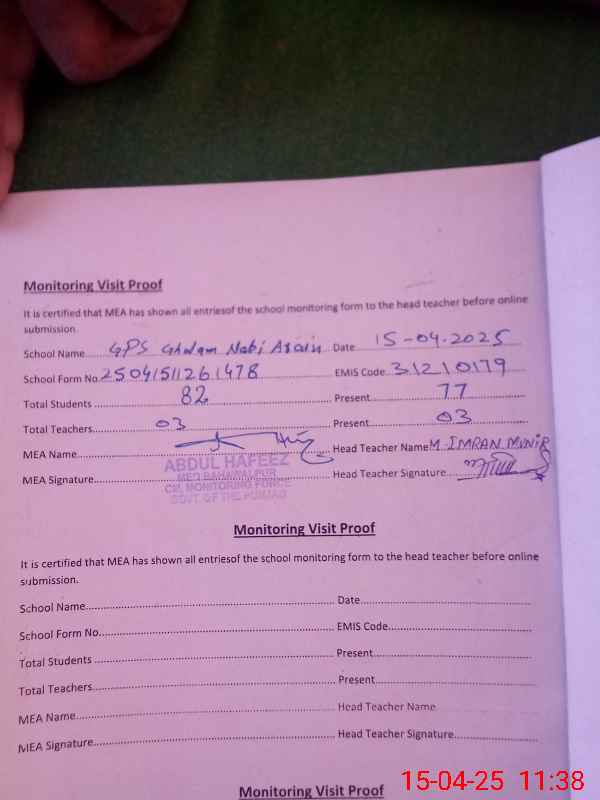 Monitoring Visit Proof
It is certified that MEA has shown all entriesof the school monitoring form to the head teacher before online
submission.
School Name GPS Ghulam Nabi Arain Date 15-04-2025
School Form No. 25041511261478 EMIS Code 31210179
Total Students 82 Present 77
Total Teachers 03 Present 03
MEA Name Head Teacher Name M IMRAN MUNIR
ABDUL HAFEEZ
MEA Signature Head Teacher Signature
MEO BAHAWALPUR
CM, MONITORING FORCE
GOVT. OF THE PUNJAB
Monitoring Visit Proof
It is certified that MEA has shown all entriesof the school monitoring form to the head teacher before online
submission.
School Name Date
School Form No. EMIS Code
Total Students Present
Total Teachers Present
MEA Name Head Teacher Name
MEA Signature Head Teacher Signature
Monitoring Visit Proof
15-04-25 11:38